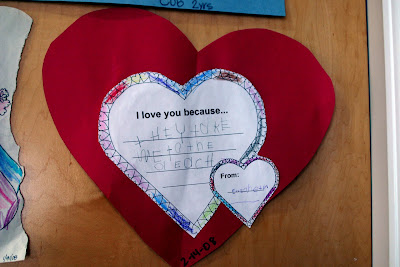 CUB 2yrs
I love you because...
THEY TAKE
ME TO THE
BEACH
From:
2-14-08